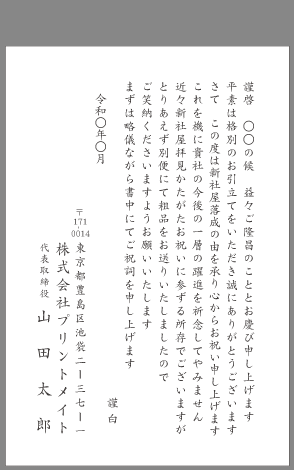 謹啓　〇〇の候　益々ご隆昌のこととお慶び申し上げます
平素は格別のお引立てをいただき誠にありがとうございます
さて　この度は新社屋落成の由を承り心からお祝い申し上げます
これを機に貴社の今後の一層の躍進を祈念してやみません
近々新社屋拝見かたがたお祝いに参ずる所存でございますが
とりあえず別便にて粗品をお送りいたしましたので
ご笑納くださいますようお願いいたします
まずは略儀ながら書中にてご祝詞を申し上げます
謹白
令和〇年〇月
〒171-0014
東京都豊島区池袋二ー三七ー一
株式会社プリントメイト
代表取締役　山田太郎